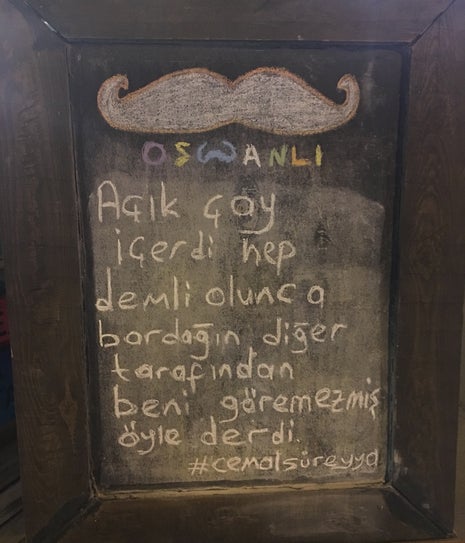 OSMANLI
Açık çay
içerdi hep
demli olunca
bardağın diğer
tarafından
beni göremezmiş
öyle derdi.
#cemalsüreyya